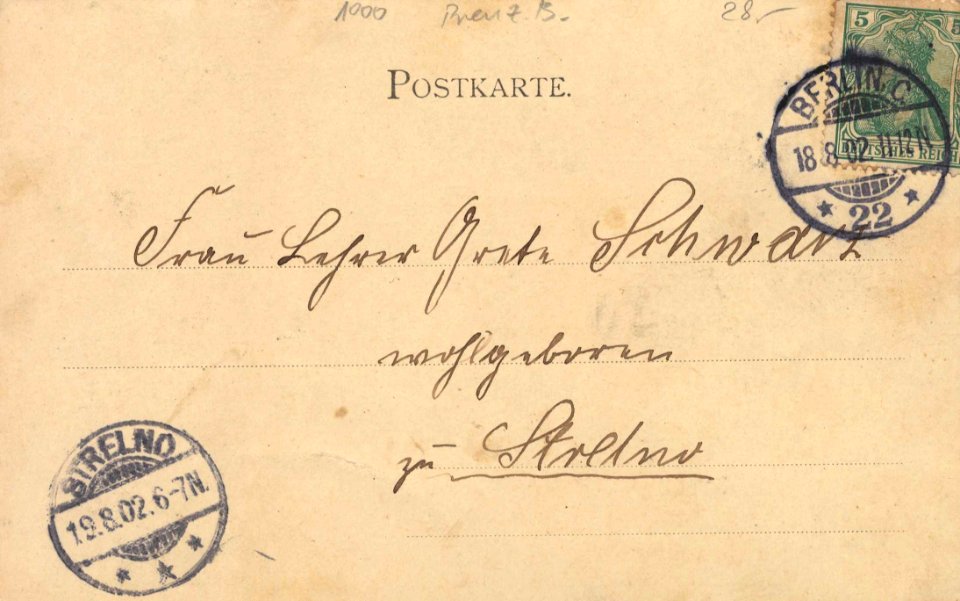 1000 Prenz. B. 28.-
POSTKARTE.
5 5
DEUTSCHES REICH
BERLIN. C.
18.8.02.11-12N.
* 22 *
Frau Lehrer Grete Schwarz
wohlgeboren
zu Strelno
STRELNO.
19.8.02.6-7N.
* * *